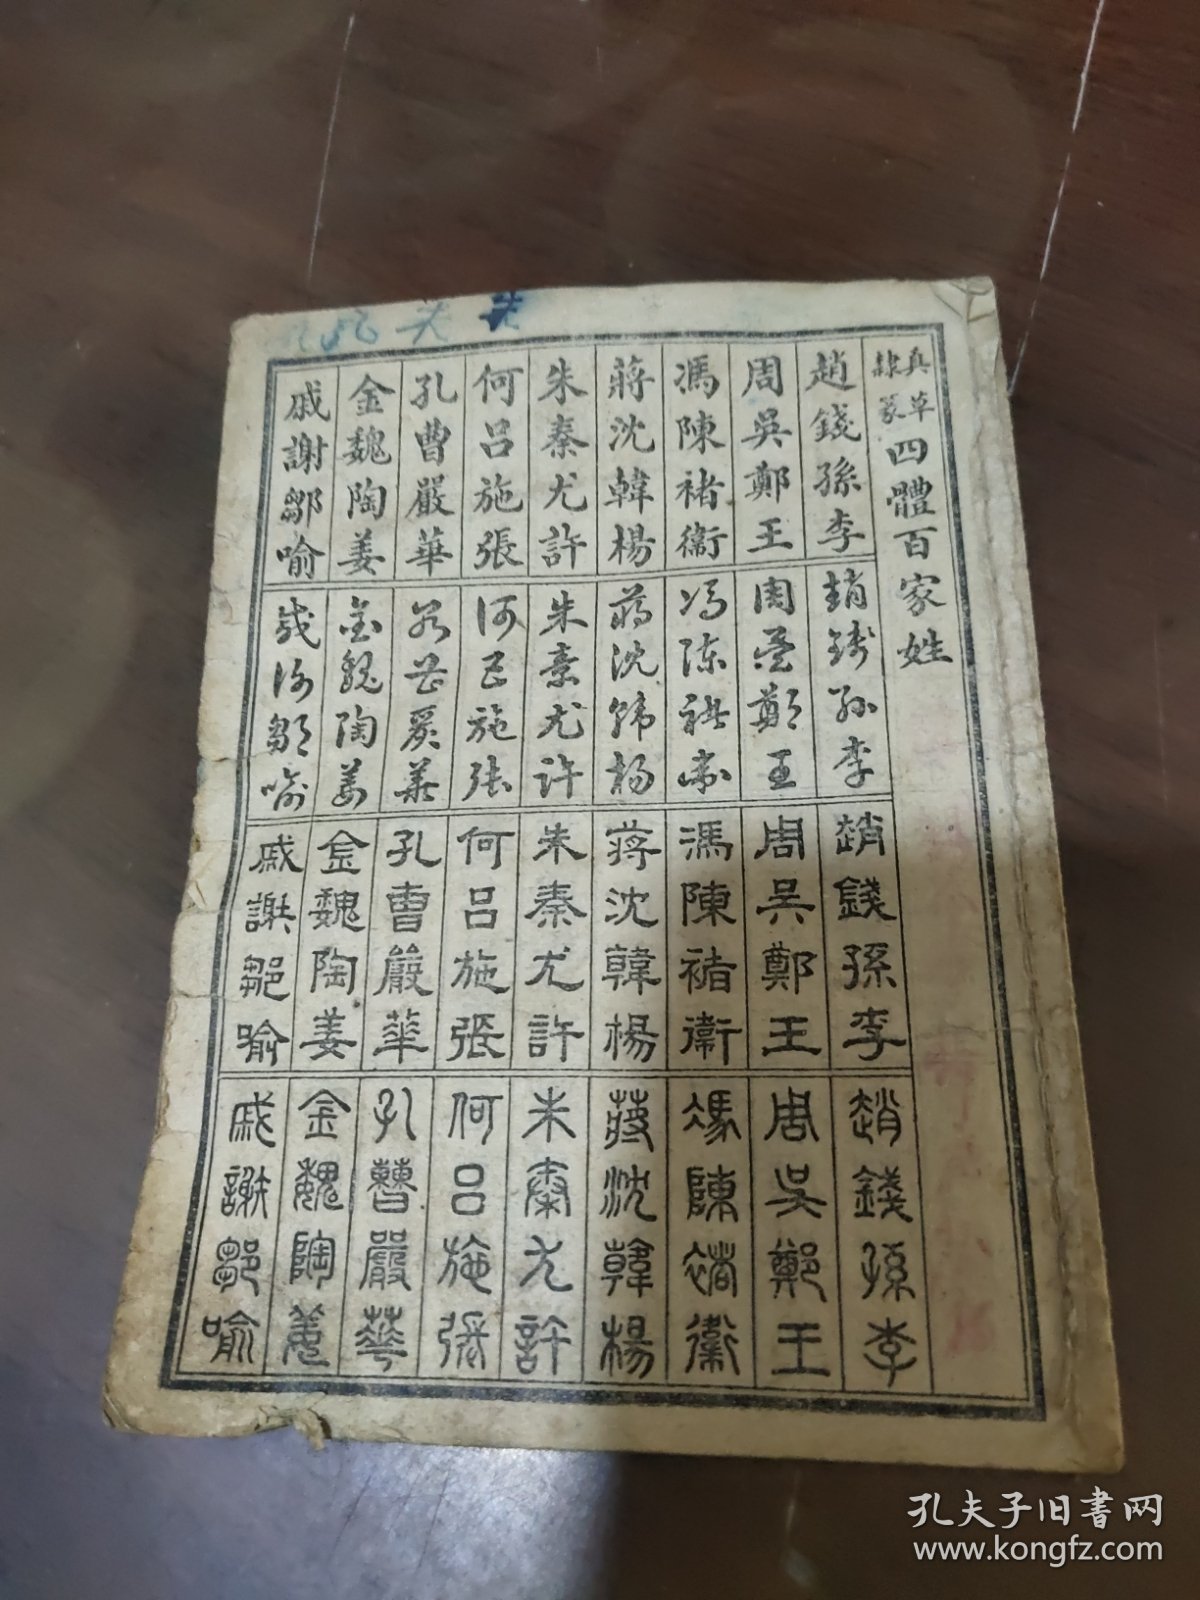 真草隸篆四體百家姓
趙錢孫李
周吳鄭王
馮陳褚衞
蔣沈韓楊
朱秦尤許
何呂施張
孔曹嚴華
金魏陶姜
戚謝鄒喻
趙錢孫李
周吳鄭王
馮陳褚衞
蔣沈韓楊
朱秦尤許
何呂施張
孔曹嚴華
金魏陶姜
戚謝鄒喻
趙錢孫李
周吳鄭王
馮陳褚衞
蔣沈韓楊
朱秦尤許
何呂施張
孔曹嚴華
金魏陶姜
戚謝鄒喻
趙錢孫李
周吳鄭王
馮陳褚衞
蔣沈韓楊
朱秦尤許
何呂施張
孔曹嚴華
金魏陶姜
戚謝鄒喻
孔夫子旧书网
www.kongfz.com